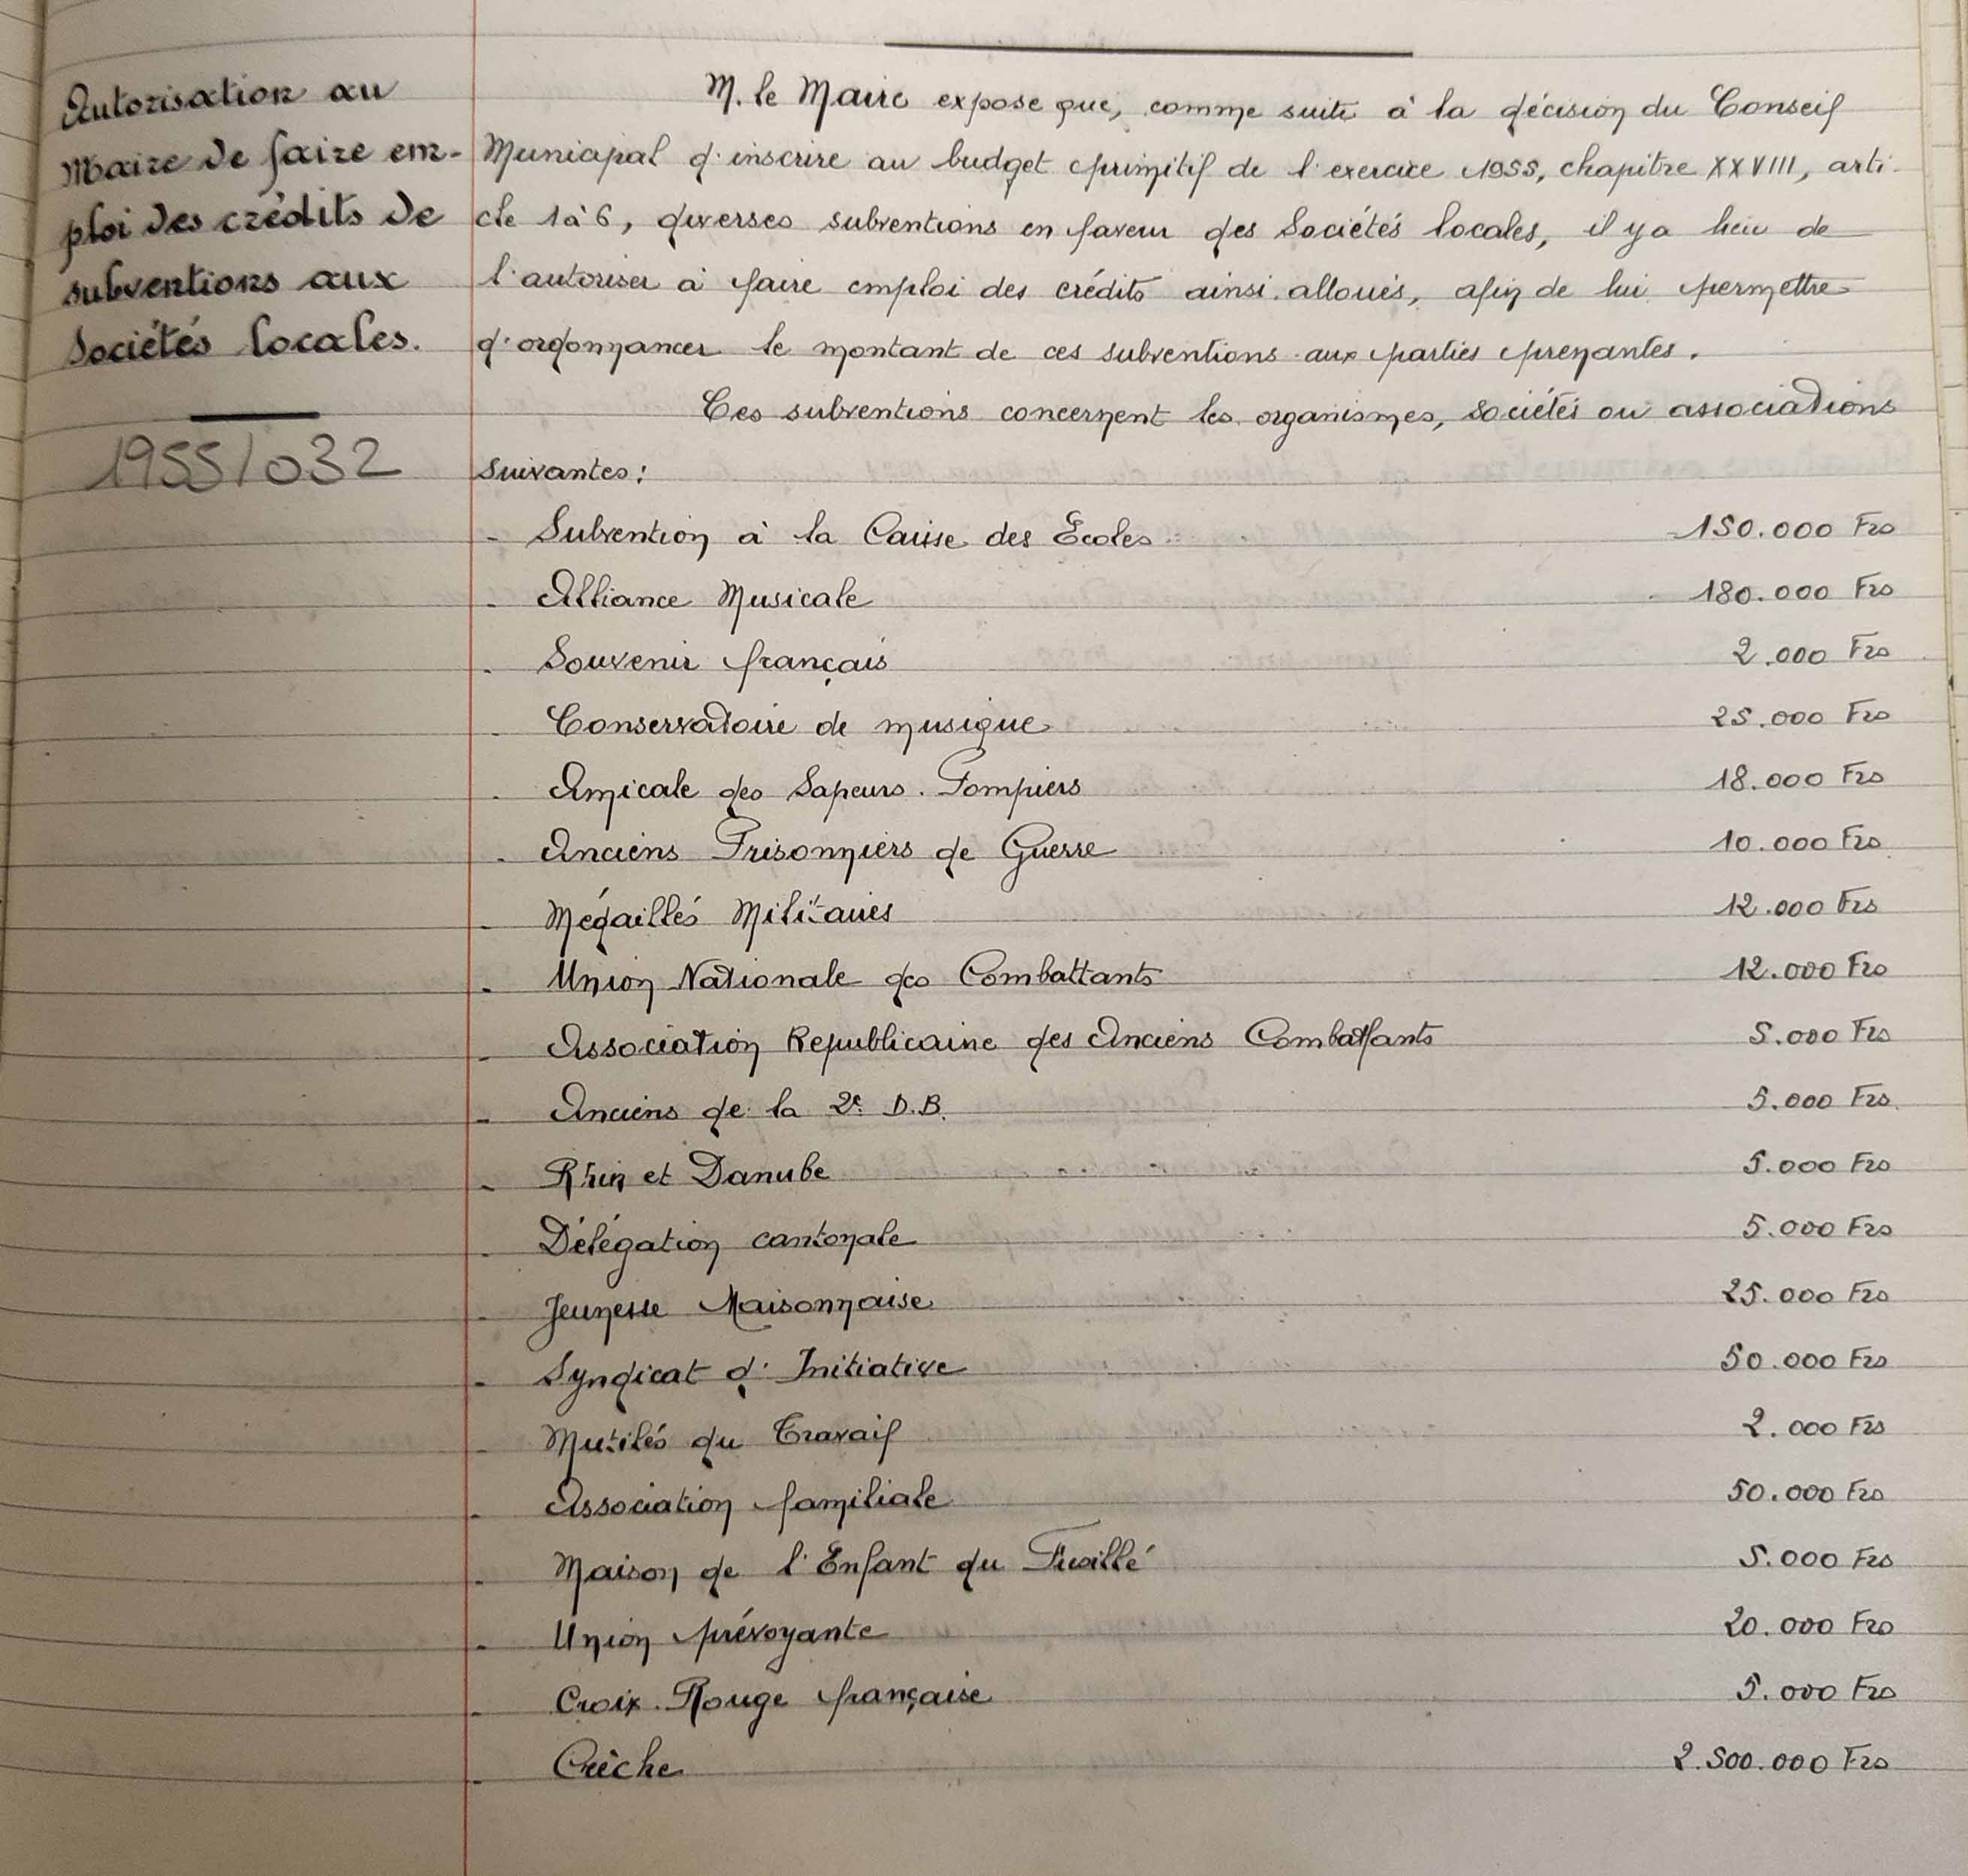 Autorisation au
Maire de faire em-
ploi des crédits de
subventions aux
Sociétés locales.
1955/032
M. le Maire expose que, comme suite à la décision du Conseil
Municipal d'inscrire au budget primitif de l'exercice 1955, chapitre XXVIII, arti-
cle 1 à 6, diverses subventions en faveur des Sociétés locales, il y a lieu de
l'autoriser à faire emploi des crédits ainsi alloués, afin de lui permettre
d'ordonnancer le montant de ces subventions aux parties prenantes.
Ces subventions concernent les organismes, sociétés ou associations
suivantes :
- Subvention à la Caisse des Ecoles 150.000 Frs
- Alliance Musicale 180.000 Frs
- Souvenir français 2.000 Frs
- Conservatoire de musique 25.000 Frs
- Amicale des Sapeurs-Pompiers 18.000 Frs
- Anciens Prisonniers de Guerre 10.000 Frs
- Médaillés Militaires 12.000 Frs
- Union Nationale des Combattants 12.000 Frs
- Association Republicaine des Anciens Combattants 5.000 Frs
- Anciens de la 2e D.B. 5.000 Frs
- Rhin et Danube 5.000 Frs
- Délégation cantonale 5.000 Frs
- Jeunesse Maisonnaise 25.000 Frs
- Syndicat d'Initiative 50.000 Frs
- Mutilés du Travail 2.000 Frs
- Association familiale 50.000 Frs
- Maison de l'Enfant du Fusillé 5.000 Frs
- Union prévoyante 20.000 Frs
- Croix-Rouge française 5.000 Frs
- Crèche 2.500.000 Frs